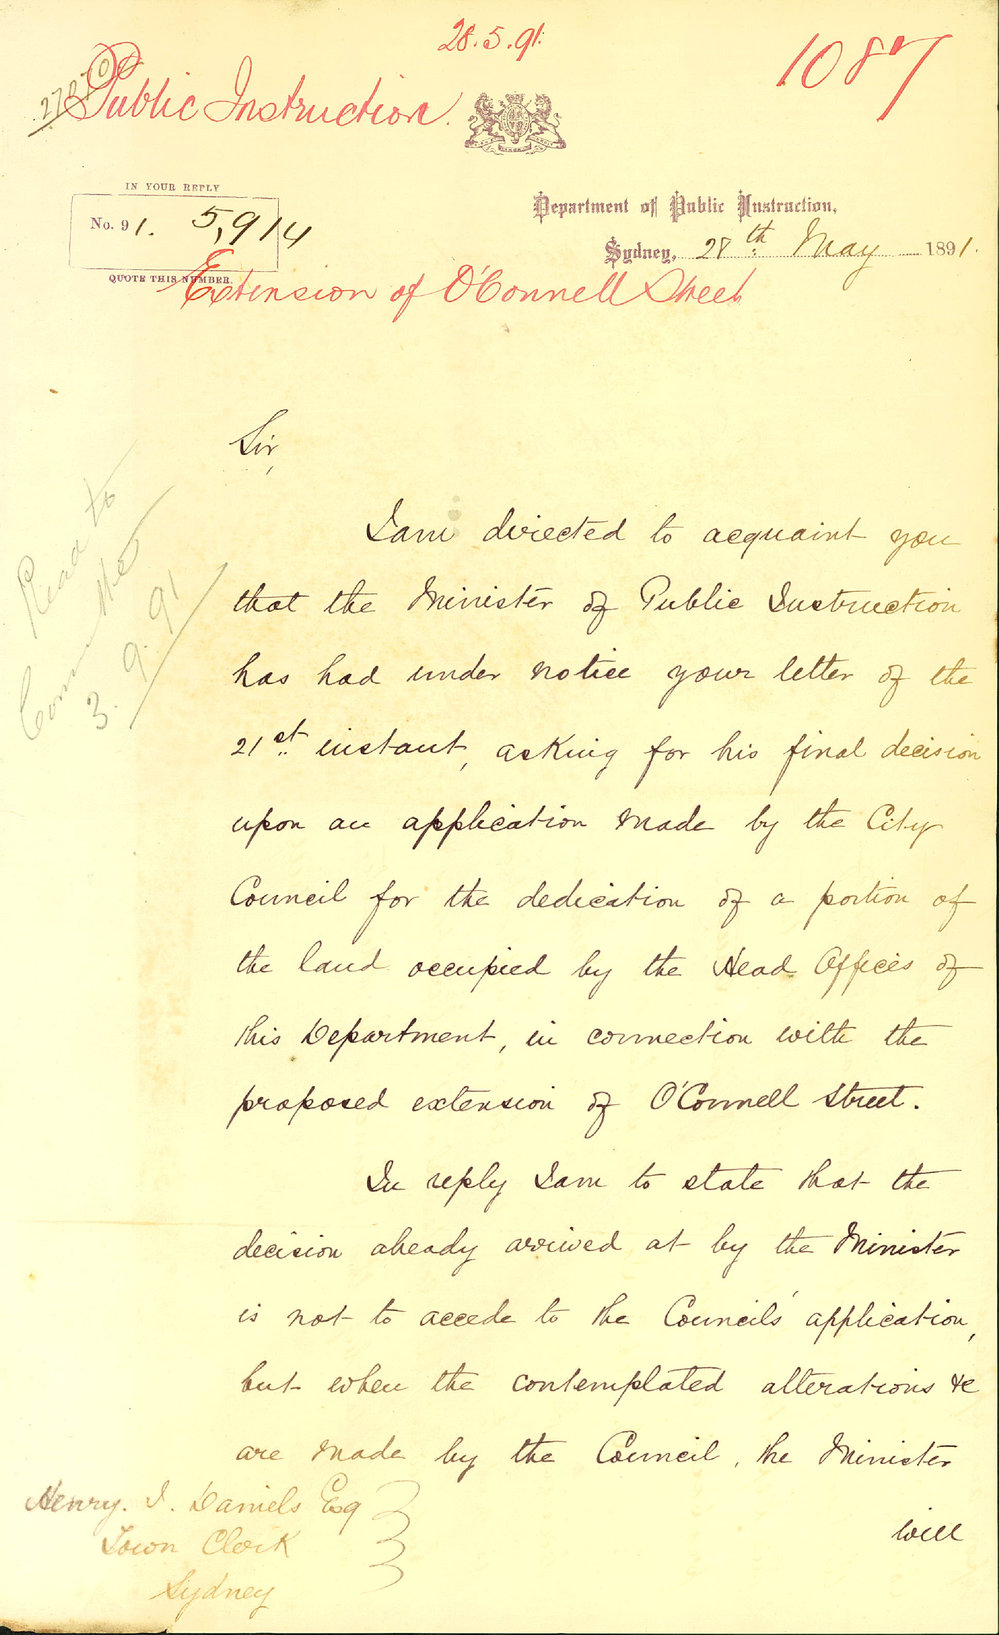 28.5.91.
1087
Public Instruction.
IN YOUR REPLY
No. 91. 5,914
QUOTE THIS NUMBER.
Department of Public Instruction,
Sydney, 28th May 1891.
Extension of O'Connell Street
Sir,
I am directed to acquaint you
that the Minister of Public Instruction
has had under notice your letter of the
21st instant, asking for his final decision
upon an application made by the City
Council for the dedication of a portion of
the land occupied by the Head Offices of
this Department, in connection with the
proposed extension of O'Connell Street.
In reply I am to state that the
decision already arrived at by the Minister
is not to accede to the Council's application,
but when the contemplated alterations &c
are made by the Council, the Minister
will
Read to
Committee
3.9.91
Henry. I. Daniels Esq
Town Clerk
Sydney